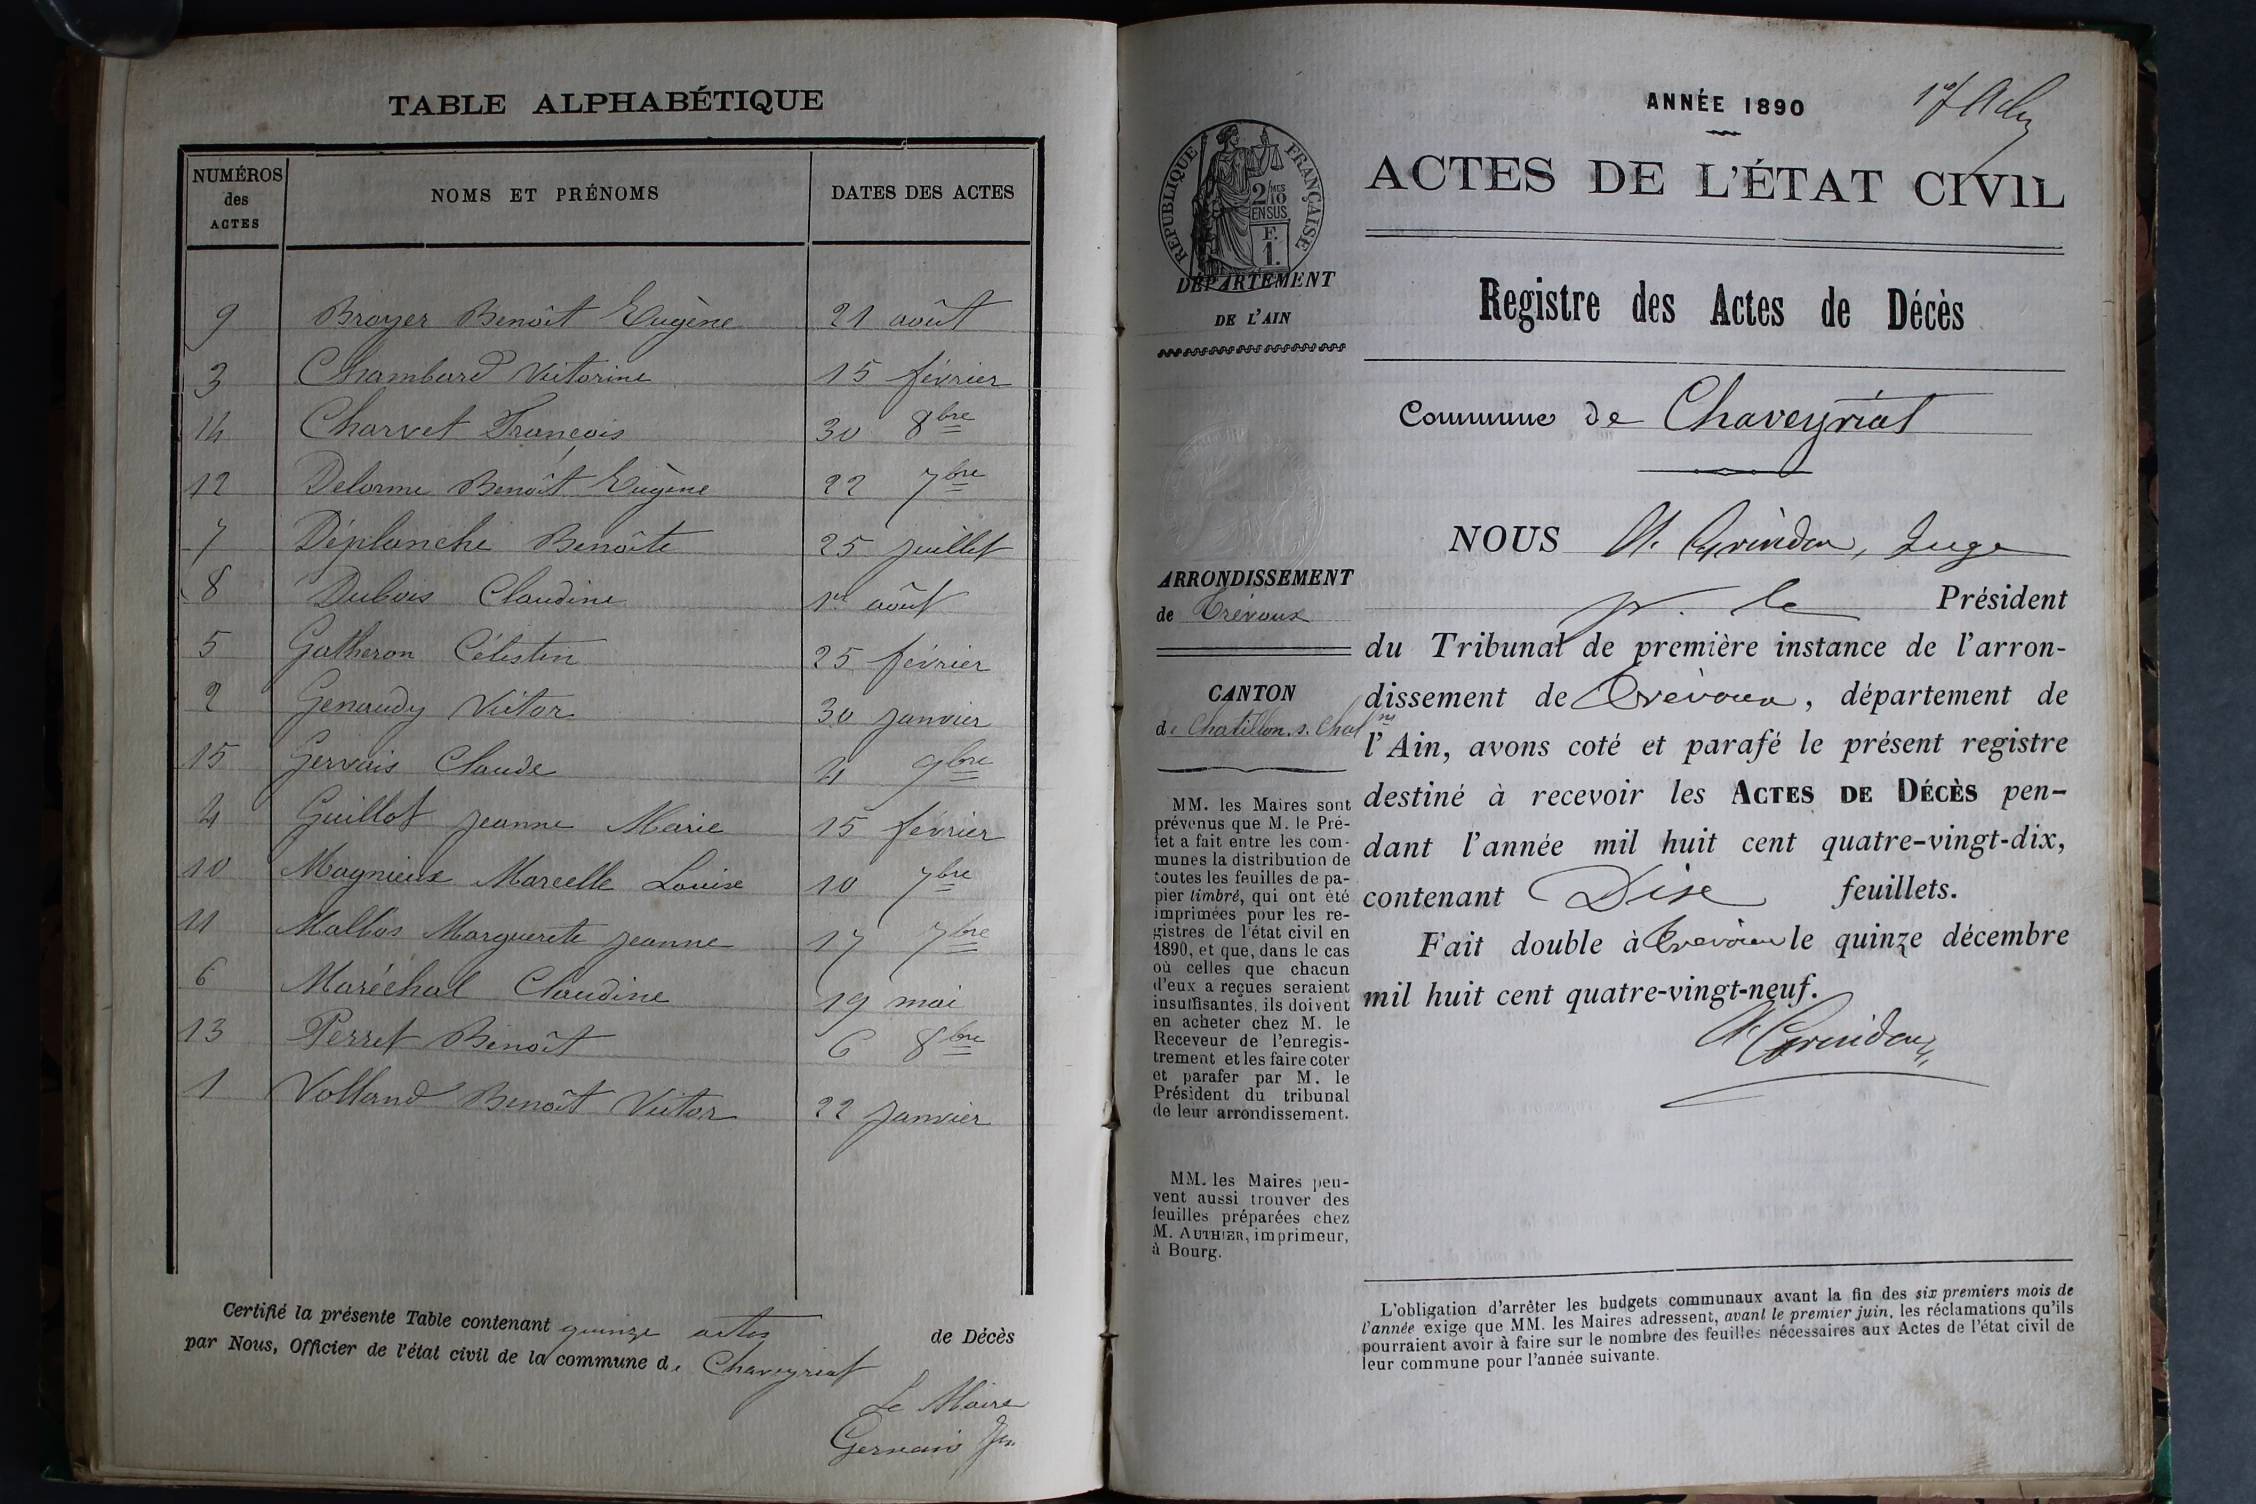 TABLE ALPHABÉTIQUE
NUMÉROS des ACTES NOMS ET PRÉNOMS DATES DES ACTES
9 Broyer Benoît Eugène 21 août
3 Chambard Victorine 15 février
14 Charvet François 30 8bre
12 Delorme Benoît Eugène 22 7bre
7 Déplanche Benoîte 25 juillet
8 Dubois Claudine 1er août
5 Gatheron Célestin 25 février
2 Genaudy Victor 30 janvier
15 Gervais Claude 4 9bre
4 Guillot Jeanne Marie 15 février
10 Magnieux Marcelle Louise 10 7bre
11 Malbos Marguerite Jeanne 17 7bre
6 Maréchal Claudine 19 mai
13 Perret Benoît 6 8bre
1 Volland Benoît Victor 22 janvier
Certifié la présente Table contenant quinze actes de Décès
par Nous, Officier de l'état civil de la commune de Chaveyriat
Le Maire
Gervais
ANNÉE 1890
ACTES DE L'ÉTAT CIVIL
RÉPUBLIQUE FRANÇAISE
2/10MES
EN SUS
F.
1.
DÉPARTEMENT
DE L'AIN
Registre des Actes de Décès
Commune de Chaveyriat
ARRONDISSEMENT
de Trévoux
CANTON
de Chatillon s. Chalne
MM. les Maires sont
prévenus que M. le Pré-
fet a fait entre les com-
munes la distribution de
toutes les feuilles de pa-
pier timbré, qui ont été
imprimées pour les re-
gistres de l'état civil en
1890, et que, dans le cas
où celles que chacun
d'eux a reçues seraient
insuffisantes, ils doivent
en acheter chez M. le
Receveur de l'enregis-
trement et les faire coter
et parafer par M. le
Président du tribunal
de leur arrondissement.
MM. les Maires peu-
vent aussi trouver des
feuilles préparées chez
M. AUTHIER, imprimeur,
à Bourg.
NOUS A. Grindon, Juge
p. le Président
du Tribunal de première instance de l'arron-
dissement de Trévoux, département de
l'Ain, avons coté et parafé le présent registre
destiné à recevoir les ACTES DE DÉCÈS pen-
dant l'année mil huit cent quatre-vingt-dix,
contenant Dix feuillets.
Fait double à Trévoux le quinze décembre
mil huit cent quatre-vingt-neuf.
A. Grindon
L'obligation d'arrêter les budgets communaux avant la fin des six premiers mois de
l'année exige que MM. les Maires adressent, avant le premier juin, les réclamations qu'ils
pourraient avoir à faire sur le nombre des feuilles nécessaires aux Actes de l'état civil de
leur commune pour l'année suivante.